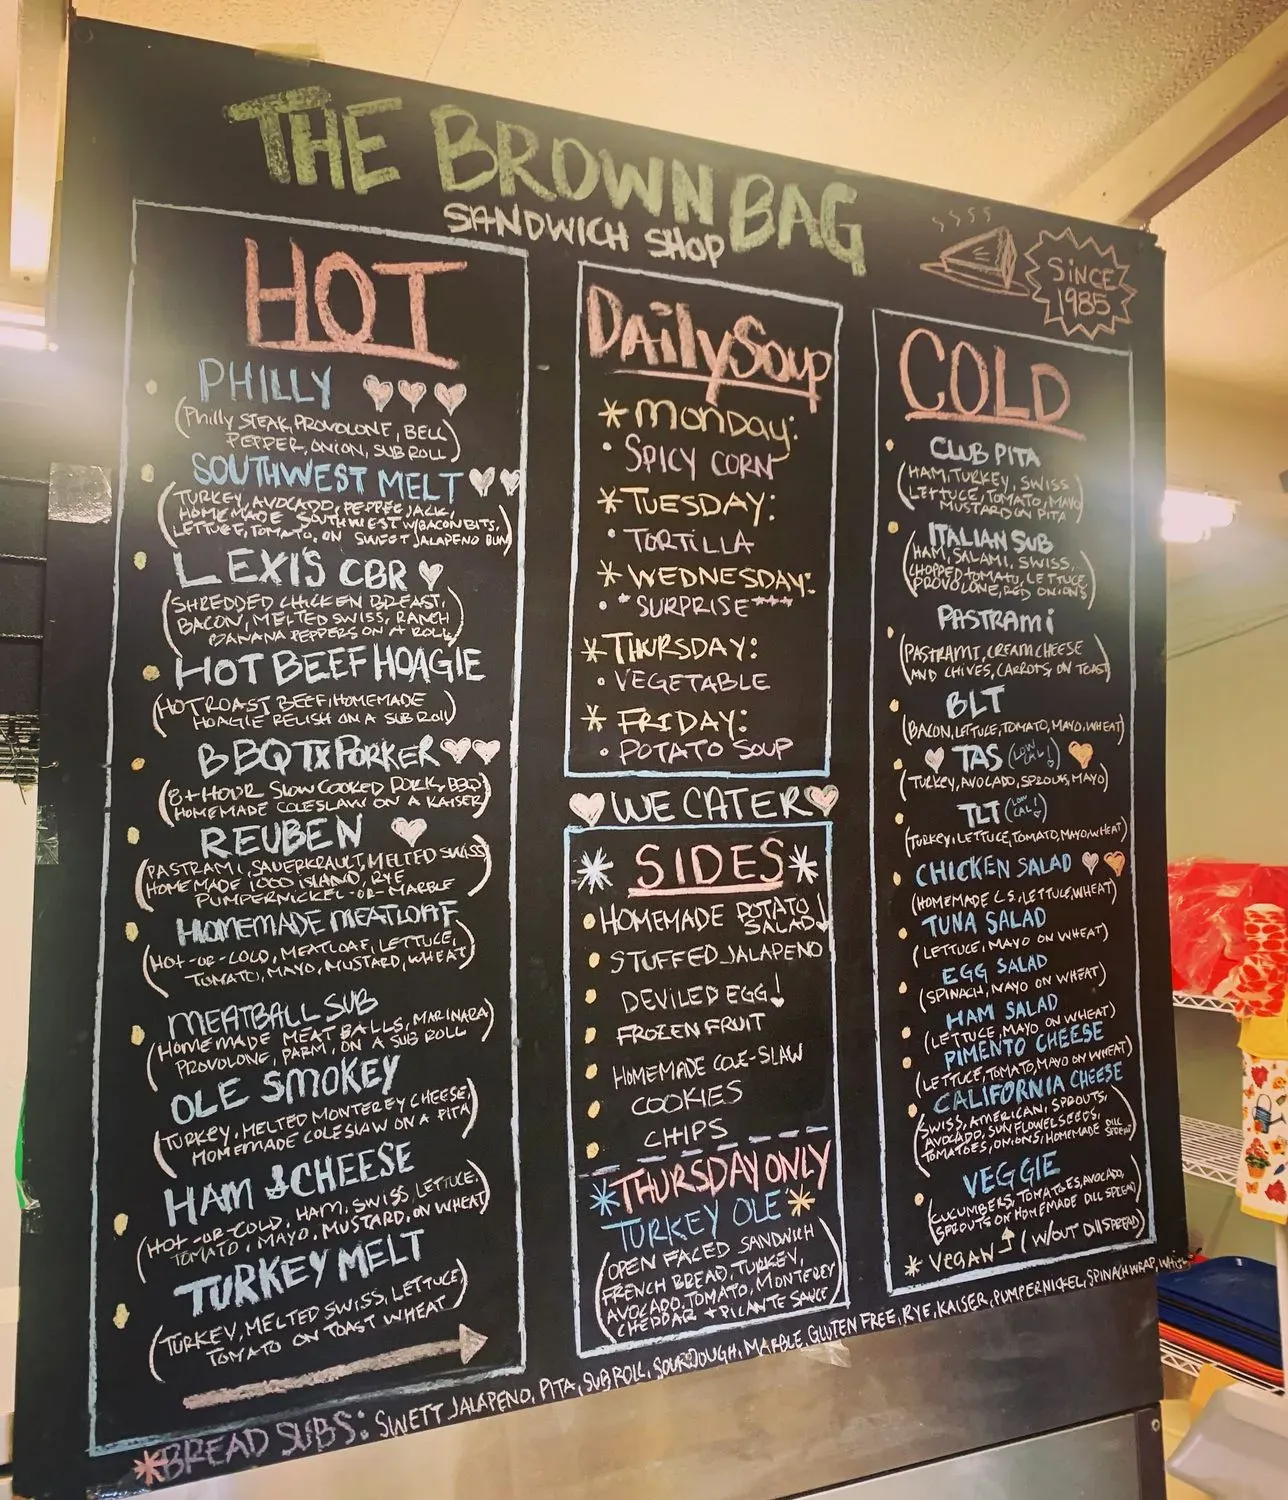 THE BROWN BAG
SANDWICH SHOP
SINCE
1985
HOT
PHILLY
(Philly STEAK, PROVOLONE, BELL
PEPPER, ONION, SUB ROLL)
SOUTHWEST MELT
(TURKEY, AVOCADO, PEPPER JACK,
HOMEMADE SOUTHWEST W/BACON BITS,
LETTUCE, TOMATO, ON SWEET JALAPENO BUN)
LEXI'S CBR
(SHREDDED CHICKEN BREAST,
BACON, MELTED SWISS, RANCH
BANANA PEPPERS ON A ROLL)
HOT BEEF HOAGIE
(HOT ROAST BEEF, HOMEMADE
HOAGIE RELISH ON A SUB ROLL)
BBQ TX PORKER
(8+HOUR SLOW COOKED PORK, BBQ
HOMEMADE COLESLAW ON A KAISER)
REUBEN
(PASTRAMI, SAUERKRAULT, MELTED SWISS
HOMEMADE 1000 ISLAND, RYE
PUMPERNICKEL -OR- MARBLE)
HOMEMADE MEATLOAF
(HOT -OR- COLD, MEATLOAF, LETTUCE,
TOMATO, MAYO, MUSTARD, WHEAT)
MEATBALL SUB
(HOMEMADE MEAT BALLS, MARINARA
PROVOLONE, PARM, ON A SUB ROLL)
OLE SMOKEY
(TURKEY, MELTED MONTEREY CHEESE,
HOMEMADE COLESLAW ON A PITA)
HAM & CHEESE
(HOT -OR- COLD, HAM, SWISS, LETTUCE,
TOMATO, MAYO, MUSTARD, ON WHEAT)
TURKEY MELT
(TURKEY, MELTED SWISS, LETTUCE
TOMATO ON TOAST WHEAT)
Daily Soup
*MONDAY:
• SPICY CORN
*TUESDAY:
• TORTILLA
*WEDNESDAY:
• *SURPRISE***
*THURSDAY:
• VEGETABLE
*FRIDAY:
• POTATO SOUP
WE CATER
*SIDES*
HOMEMADE POTATO
SALAD!
STUFFED JALAPENO
DEVILED EGG!
FROZEN FRUIT
HOMEMADE COLE-SLAW
COOKIES
CHIPS
*THURSDAY ONLY
TURKEY OLE'*
(OPEN FACED SANDWICH
FRENCH BREAD, TURKEY,
AVOCADO, TOMATO, MONTEREY
CHEDDAR + PICANTE SAUCE)
COLD
CLUB PITA
(HAM, TURKEY, SWISS
LETTUCE, TOMATO, MAYO
MUSTARD ON PITA)
ITALIAN SUB
(HAM, SALAMI, SWISS,
CHOPPED TOMATO, LETTUCE
PROVOLONE, RED ONIONS)
PASTRAMI
(PASTRAMI, CREAM CHEESE
AND CHIVES, CARROTS, ON TOAST)
BLT
(BACON, LETTUCE, TOMATO, MAYO, WHEAT)
TAS (LOW CAL!)
(TURKEY, AVOCADO, SPROUTS, MAYO)
TLT (LOW CAL!)
(TURKEY, LETTUCE, TOMATO, MAYO, WHEAT)
CHICKEN SALAD
(HOMEMADE C.S., LETTUCE, WHEAT)
TUNA SALAD
(LETTUCE, MAYO ON WHEAT)
EGG SALAD
(SPINACH, MAYO ON WHEAT)
HAM SALAD
(LETTUCE, MAYO ON WHEAT)
PIMENTO CHEESE
(LETTUCE, TOMATO, MAYO ON WHEAT)
CALIFORNIA CHEESE
(SWISS, AMERICAN, SPROUTS,
AVOCADO, SUNFLOWEL SEEDS,
TOMATOES, ONIONS, HOMEMADE DILL SPREAD)
VEGGIE
(CUCUMBERS, TOMATOES, AVOCADO,
SPROUTS ON HOMEMADE DILL SPREAD)
* VEGAN (W/OUT DILL SPREAD)
*BREAD SUBS: SWETT JALAPENO, PITA, SUB ROLL, SOURDOUGH, MARBLE, GLUTEN FREE, RYE, KAISER, PUMPERNICKEL, SPINACH WRAP,